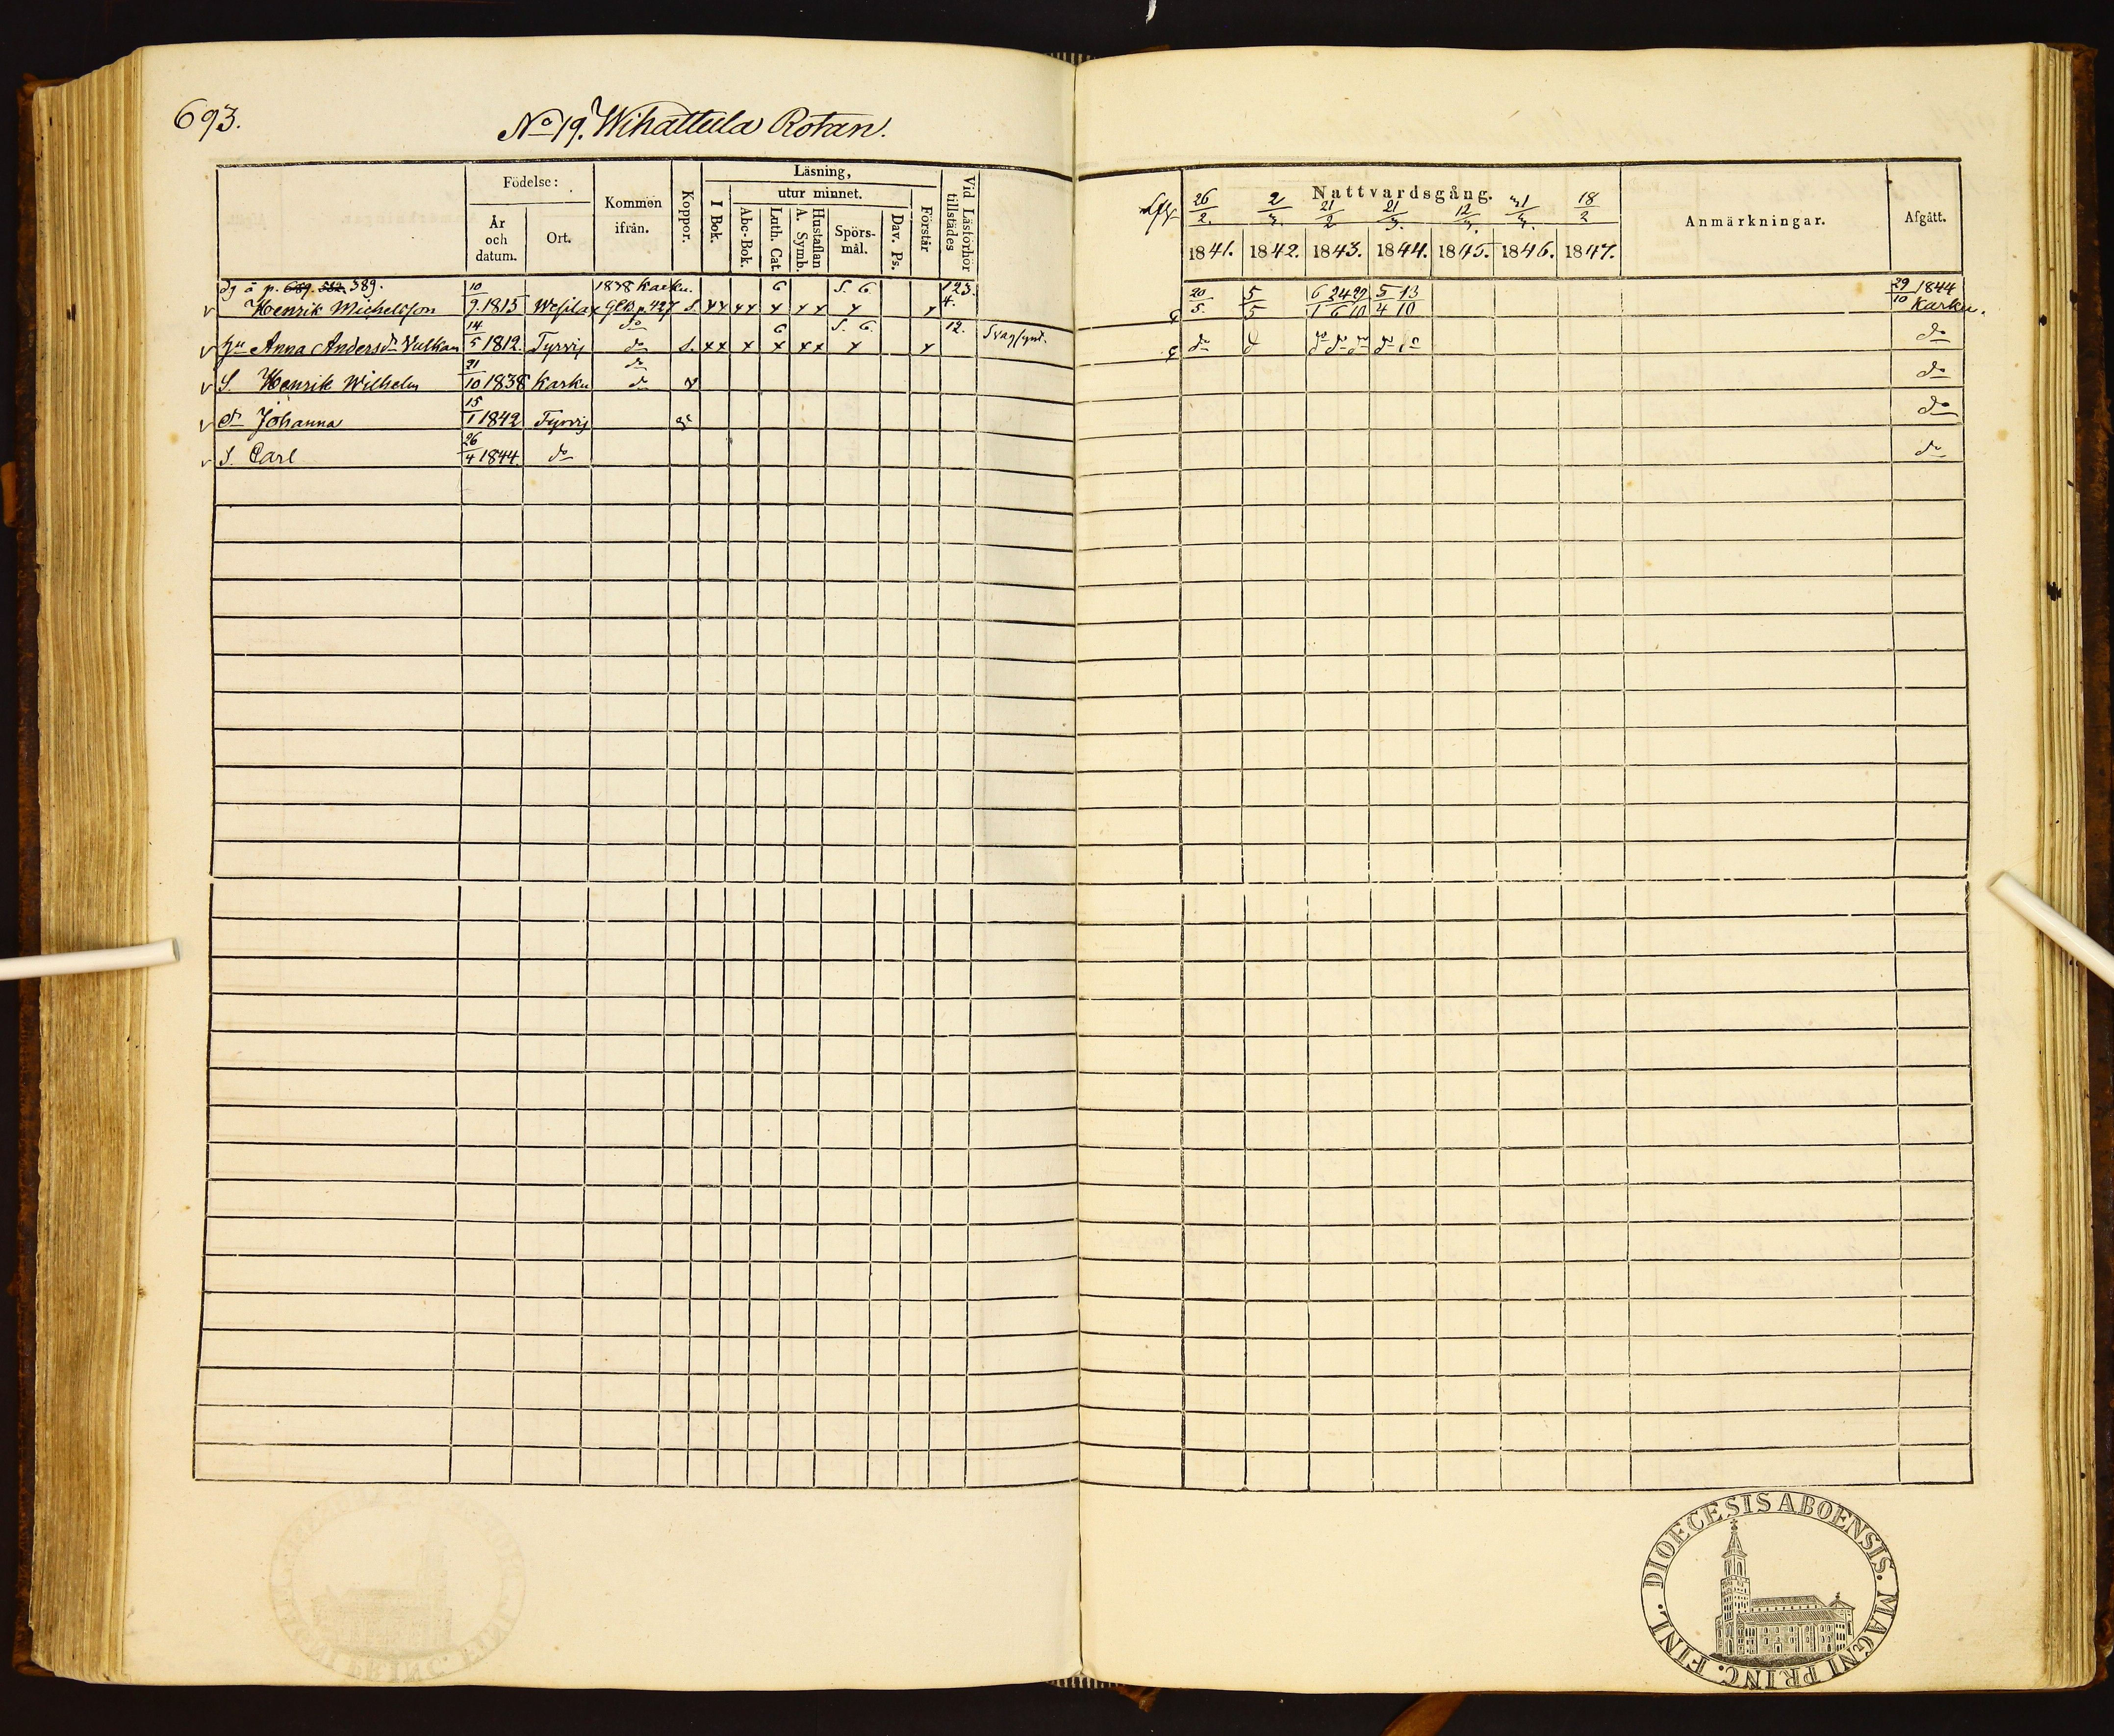 693.
No 19. Wihattula Rotan.
Födelse:
År och datum.
Ort.
Kommen ifrån.
Koppor.
Läsning,
I Bok.
utur minnet.
Abc-Bok.
Luth. Cat.
A. Symb.
Hustaflan
Spörs-mål.
Dav. Ps.
Förstår
Vid Läsförhör tillstädes
Nattvardsgång.
26/2. 2/3. 21/2 21/3. 12/3. 31/3. 18/2
1841. 1842. 1843. 1844. 1845. 1846. 1847.
Anmärkningar.
Afgått.
dg å p. 689. 389. 10 1838 Karku. 6 S. 6. 123. 29 1844
v Henrik Michelsson 9. 1815 Wesilax p. 427 S. 4. 20/5. 5/5 6/1 24/6 29/10 5/4 13/10 10 Karku.
14 do 6 S. 6. 12. Svagsynt.
v Hu Anna Andersdr Vulkan 5 1812. Tyrvis do S. do do do do do
21 do
v S. Henrik Wilhelm 10 1838 Karku do v do
15
v dr Johanna 1 1842 Tyrvis do
26
v S. Carl 4 1844. do do
DIOECESIS ABOENSIS. MAGNI PRINC. FINL.